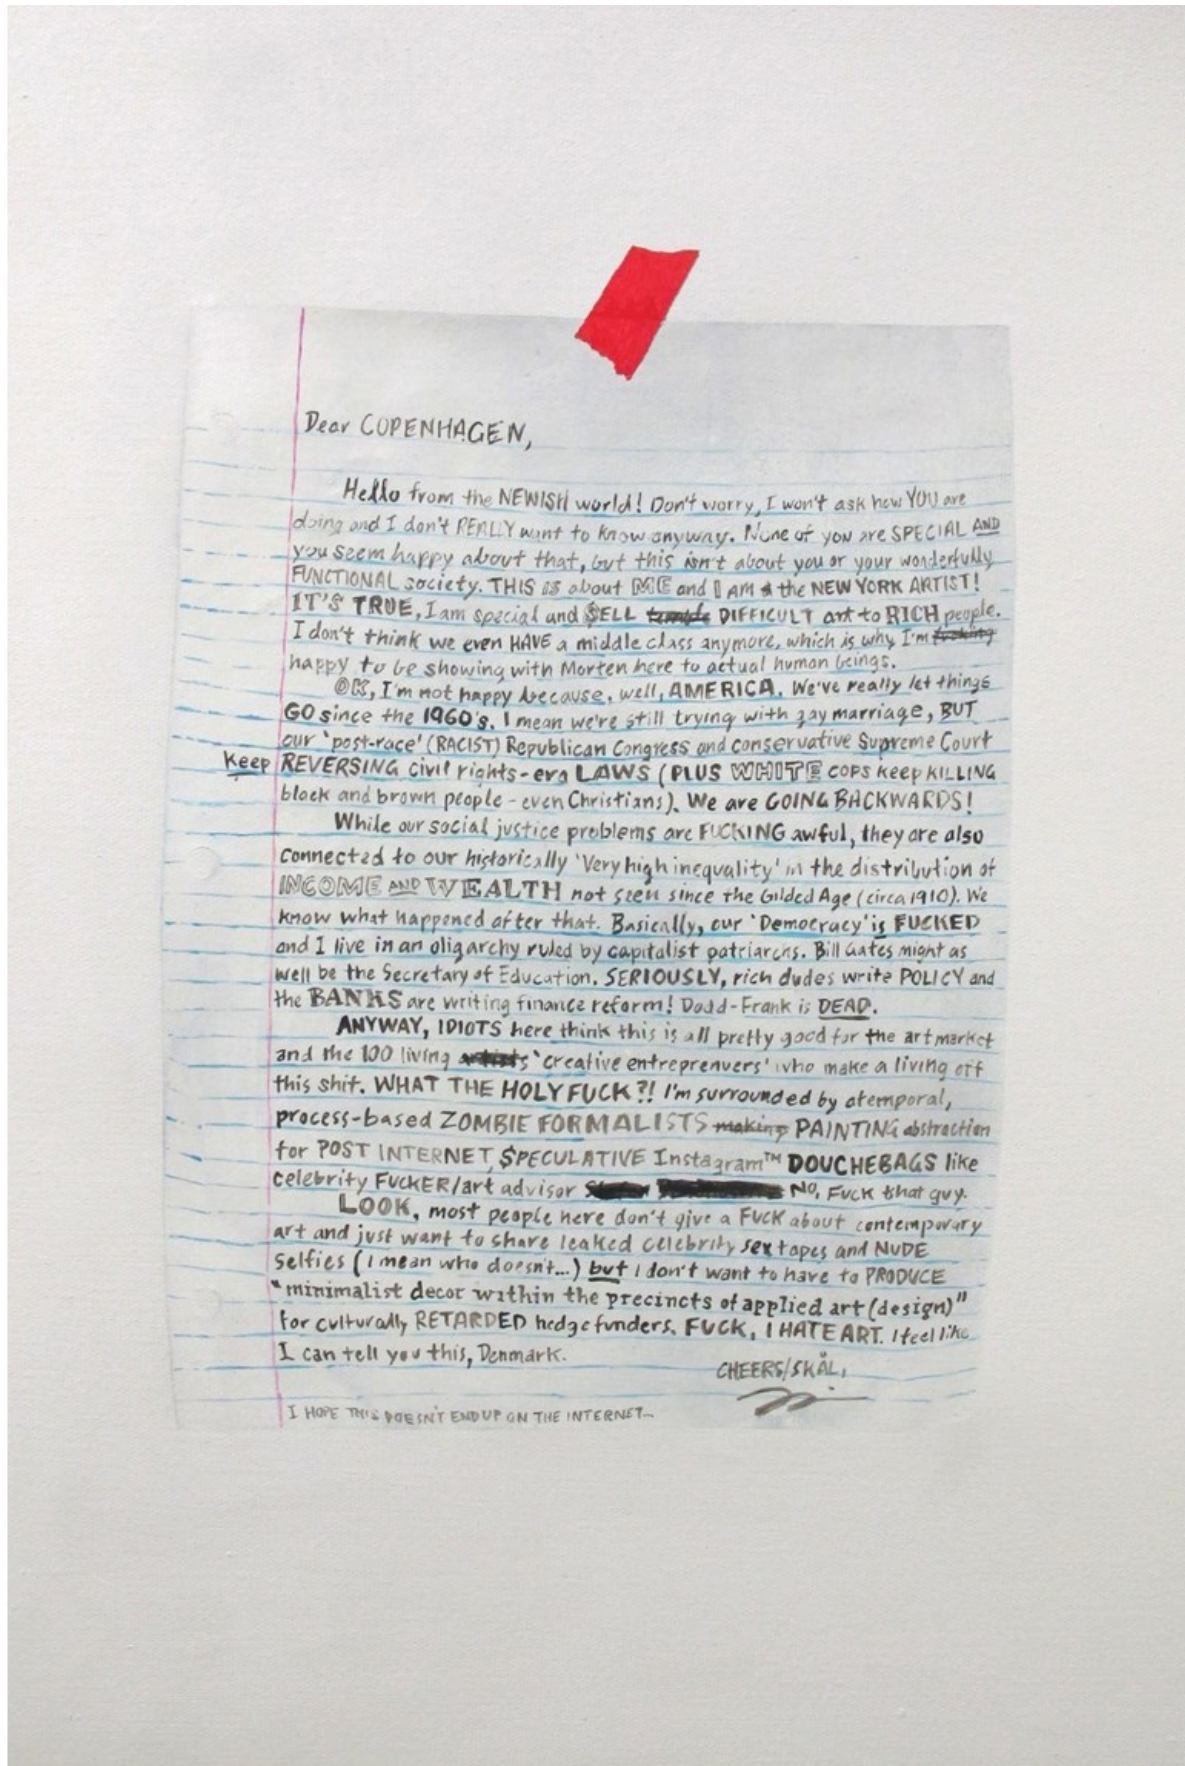 Dear COPENHAGEN,
Hello from the NEWISH world! Don't worry, I won't ask how YOU are
doing and I don't REALLY want to know anyway. None of you are SPECIAL AND
you seem happy about that, but this isn't about you or your wonderfully
FUNCTIONAL society. THIS IS about ME and I AM the NEW YORK ARTIST!
IT'S TRUE, I am special and $ELL DIFFICULT art to RICH people.
I don't think we even HAVE a middle class anymore, which is why I'm fucking
happy to be showing with Morten here to actual human beings.
OK, I'm not happy because, well, AMERICA. We've really let things
GO since the 1960's. I mean we're still trying with gay marriage, BUT
our 'post-race' (RACIST) Republican Congress and conservative Supreme Court
Keep REVERSING civil rights-era LAWS (PLUS WHITE COPS keep KILLING
black and brown people - even Christians). We are GOING BACKWARDS!
While our social justice problems are FUCKING awful, they are also
connected to our historically 'Very high inequality' in the distribution of
INCOME AND WEALTH not seen since the Gilded Age (circa 1910). We
know what happened after that. Basically, our 'Democracy' is FUCKED
and I live in an oligarchy ruled by capitalist patriarchs. Bill Gates might as
well be the Secretary of Education. SERIOUSLY, rich dudes write POLICY and
the BANKS are writing finance reform! Dodd-Frank is DEAD.
ANYWAY, IDIOTS here think this is all pretty good for the art market
and the 100 living artists 'creative entreprenuers' who make a living off
this shit. WHAT THE HOLY FUCK?! I'm surrounded by atemporal,
process-based ZOMBIE FORMALISTS making PAINTING abstraction
for POST INTERNET, $PECULATIVE Instagram™ DOUCHEBAGS like
celebrity FUCKER/art advisor NO, FUCK that guy.
LOOK, most people here don't give a FUCK about contemporary
art and just want to share leaked celebrity sex tapes and NUDE
Selfies (I mean who doesn't...) but I don't want to have to PRODUCE
"minimalist decor within the precincts of applied art (design)"
for culturally RETARDED hedgefunders. FUCK, I HATE ART. I feel like
I can tell you this, Denmark.
CHEERS/SKÅL,
I HOPE THIS DOESN'T END UP ON THE INTERNET...